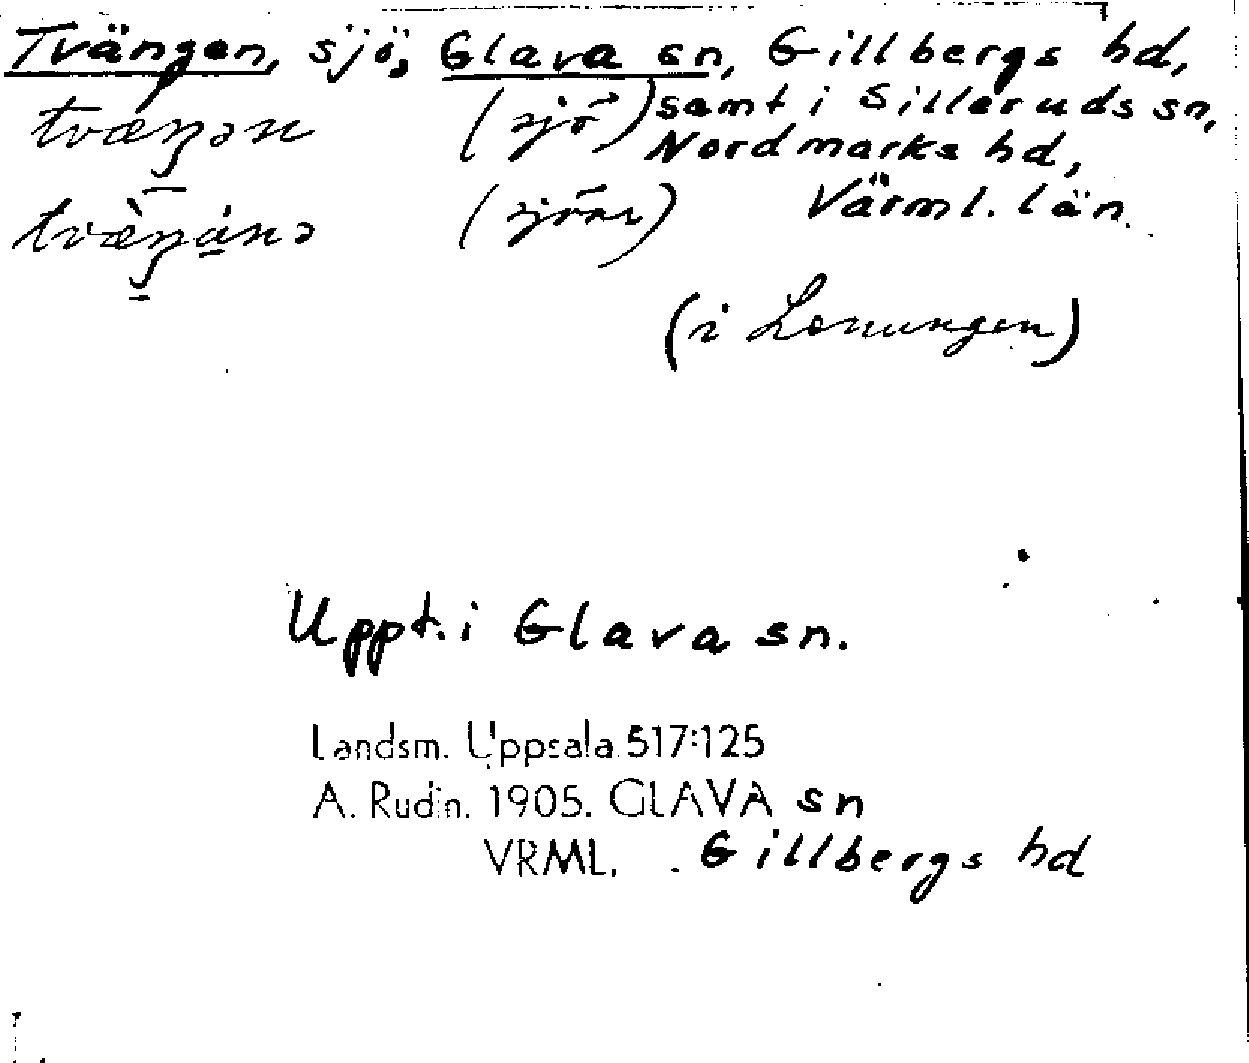 Tvängen, sjö, Glava sn, Gillbergs hd,
samt i Silleruds sn,
tvæŋən (sjö) Nordmarks hd,
tvæ̀ŋánə (sjöar) Värml. län.
(i Lenungen)
Uppt. i Glava sn.
Landsm. Uppsala 517:125
A. Rudin. 1905. GLAVA sn
VRML. Gillbergs hd